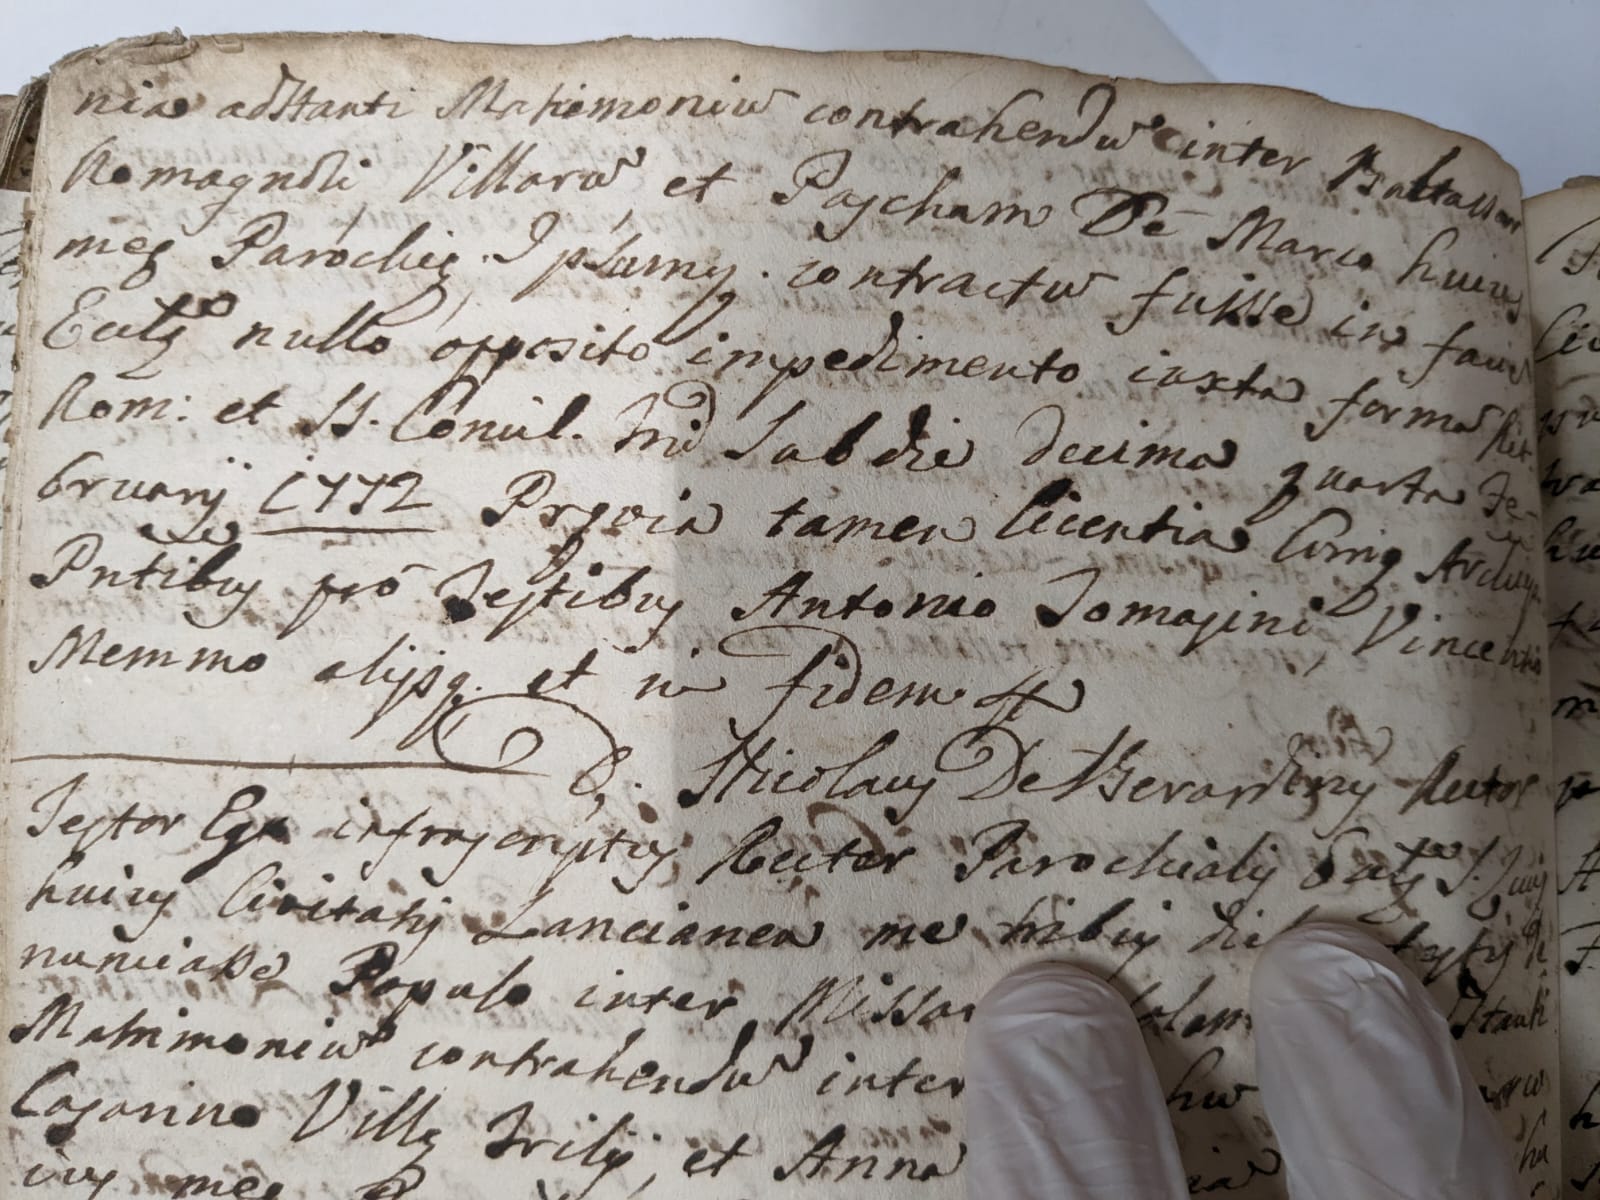 niæ adstanti Matrimoniũ contrahendũ inter Baltassar
Romagnoli Villarũ et Pascham De Marco huius
meę Parochię. Ipsumq. contractũ fuisse in facie
Eccłę nullo opposito impedimento iuxta formã Rit.
Rom: et SS. Concil. Trid Sub die decima quarta Fe-
bruarij 1772 Pręvia tamen licentia Curię Archiepis
Pñtibus pro Testibus Antonio Tomasini, Vincentio
Memmo alijsq. et in fidem
D. Nicolaus De Berardinis Rector
Testor Ego infrascriptus Rector Parochialis Eccłę S.
huius Civitatis Lanciane me tribus festis
nunciasse Populo inter Missar adstanti
Matrimoniũ contrahendũ inter
Casarino Villę Trilij, et Anna
ius meę